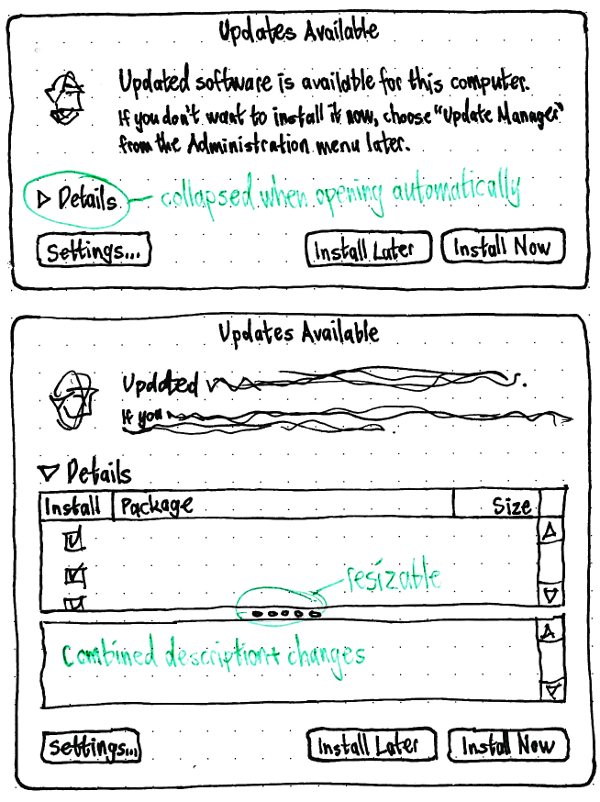 Updates Available
Updated software is available for this computer.
If you don't want to install it now, choose "Update Manager"
from the Administration menu later.
▷ Details — collapsed when opening automatically
Settings... Install Later Install Now
Updates Available
Updated
If you
▽ Details
Install Package Size
resizable
Combined description + changes
Settings... Install Later Install Now